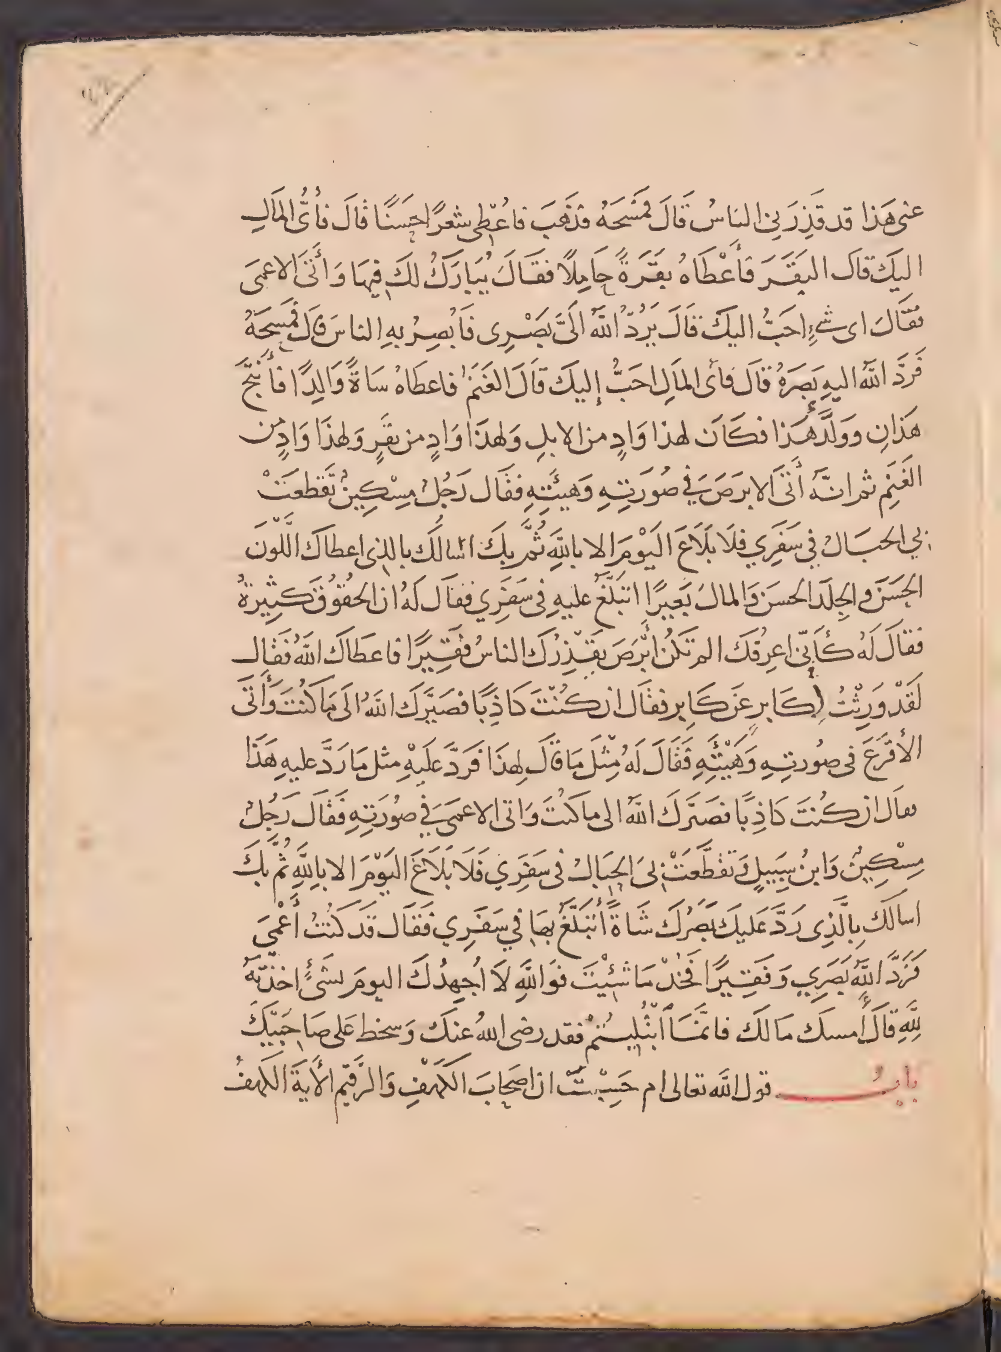 عنى هَذا قد قَذِرَنِي الناسُ قَالَ فمَسَحَهُ فذهَبَ فاعُطِى شعَرًا حَسَنًا قالَ فأىُّ المَالِ
اليك قال البَقَرَ فأَعْطَاهُ بقَرَةً حَامِلًا فقَالَ يُبَارَكُ لكَ فيهَا وَأَتَى الاعمَى
فقَالَ اى شىءٍ احَبُّ اليكَ قالَ يَرُدُّ اللهُ الَىَّ بَصَرِى فَأُبصِرُ بهِ الناسَ قال فمَسَحَهُ
فَرَدَّ اللهُ اليهِ بَصَرَهُ قالَ فأى المالِ احَبُّ إليكَ قالَ الغَنَمُ فاعطاهُ شاةً وَالِدًا فأُنتِجَ
هَذانِ وَوَلَّدَ هَذا فكَانَ لهذا وَادٍ من الابلِ وَلهَذا وَادٍ من بقَرٍ وَلهذَا وَادٍ من
الغنَمِ ثم انهُ أَتَى الابرَصَ فِي صُورَتِهِ وَهَيئَتِهِ فقَال رَجُلٌ مِسْكِينٌ تَقَطعَتْ
بي الحبَالُ فِي سَفَرِي فلَا بلَاغَ اليَوْمَ الا باللهِ ثُمَّ بِكَ اسَالُكَ بالذِى اعطاكَ اللَّوْنَ
الحَسَنَ والجِلدَ الحسَنَ وَالمالَ بَعِيرًا اتبَلَّغُ عليهِ فِى سَفَرِي فقالَ لَهُ ان الحُقُوقَ كَثِيرَةٌ
فقالَ لَهُ كَأَنِّى اعرِفُكَ الم تكُنْ ابْرَصَ يَقْذِرُكَ الناسُ فقِيرًا فاعطَاكَ اللهُ فقَالَ
لَقَدْ وَرِثْتُ لِكَابرٍ عَن كَابِرٍ فقَال ان كنْتَ كَاذِبًا فصَيَّرَكَ اللهُ الَى مَا كنْتَ وَأَتَى
الأَقْرَعَ فى صُورتِهِ وَهَيْئَتِهِ فقَالَ لَهُ مِثْلَ مَا قَالَ لِهذَا فَرَدَّ عَلَيْهِ مثلَ مَا رَدَّ عليهِ هَذَا
فقال ان كُنتَ كَاذِبًا فصَيَّرَكَ اللهُ الى ما كنْتَ وَاتى الاعمَى فِي صُورَتِهِ فقَالَ رَجُلٌ
مِسْكِينٌ وَابنُ سَبِيلٍ وَتقَطَّعَتْ بِىَ الحِبَالُ فى سَفَرِي فَلَا بَلَاغَ اليَوْمَ الا باللهِ ثُمَّ بكَ
اسالُكَ بِالَّذِى رَدَّ عَليكَ بَصَرَكَ شَاةً أَتَبَلَّغُ بهَا فِي سَفَرِي فقَالَ قَد كُنْتُ أَعْمَى
فَرَدَّ اللهُ بَصَرِي وَفقِيرًا فخُذْ مَا شِئْتَ فوَاللهِ لَا اُجهِدُكَ اليومَ بشَىْءٍ اخذْتَهُ
لِلّٰهِ قالَ أَمسك مَالَكَ فانَّمَا ابْتُلِيتُمْ فقد رضى اللهُ عنكَ وَسخطَ عَلى صَاحِبَيْكَ
بابُ قول الله تعالى ام حَسِبْتَ ان اصحَابَ الكَهْفِ وَالرَّقِيمِ الأَيةَ الكهفُ